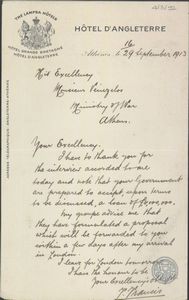 THE LAMPSA HÔTELS
HÔTEL GRANDE BRETAGNE
HÔTEL D'ANGLETERRE
HÔTEL D'ANGLETERRE
Athens, le 29 September 1913
His Excellency
Monsieur Venezelos
Ministry of War
Athens.
Your Excellency,
I have to thank you for
the interview accorded to me
today and note that your Government
are prepared to accept, upon terms
to be discussed, a loan of
My groups advise me that
they have formulated a proposal
which will be forwarded to you
within a few days after my arrival
in London.
I leave for London tomorrow
I have the honour to be
Your Excellency's
Francis